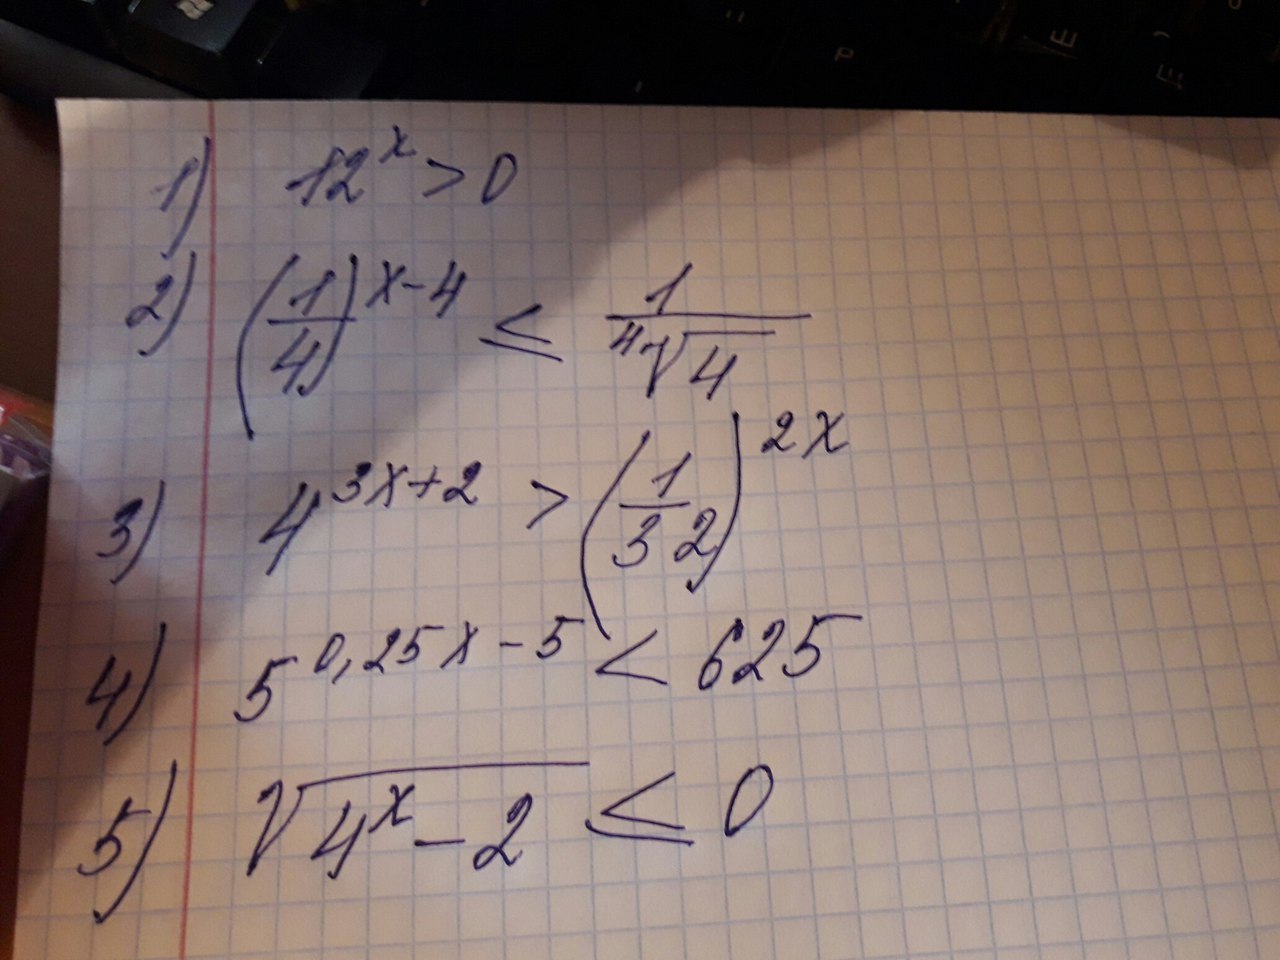 1) 12^x > 0
2) (1/4)^(x-4) ≤ 1/⁴√4
3) 4^(3x+2) > (1/32)^(2x)
4) 5^(0,25x-5) < 625
5) √(4^x-2) ≤ 0